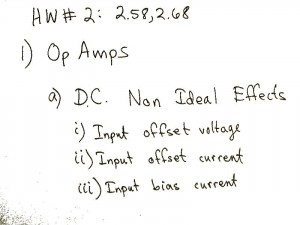 HW# 2: 2.58, 2.68
1) Op Amps
a) D.C. Non Ideal Effects
i) Input offset voltage
ii) Input offset current
iii) Input bias current